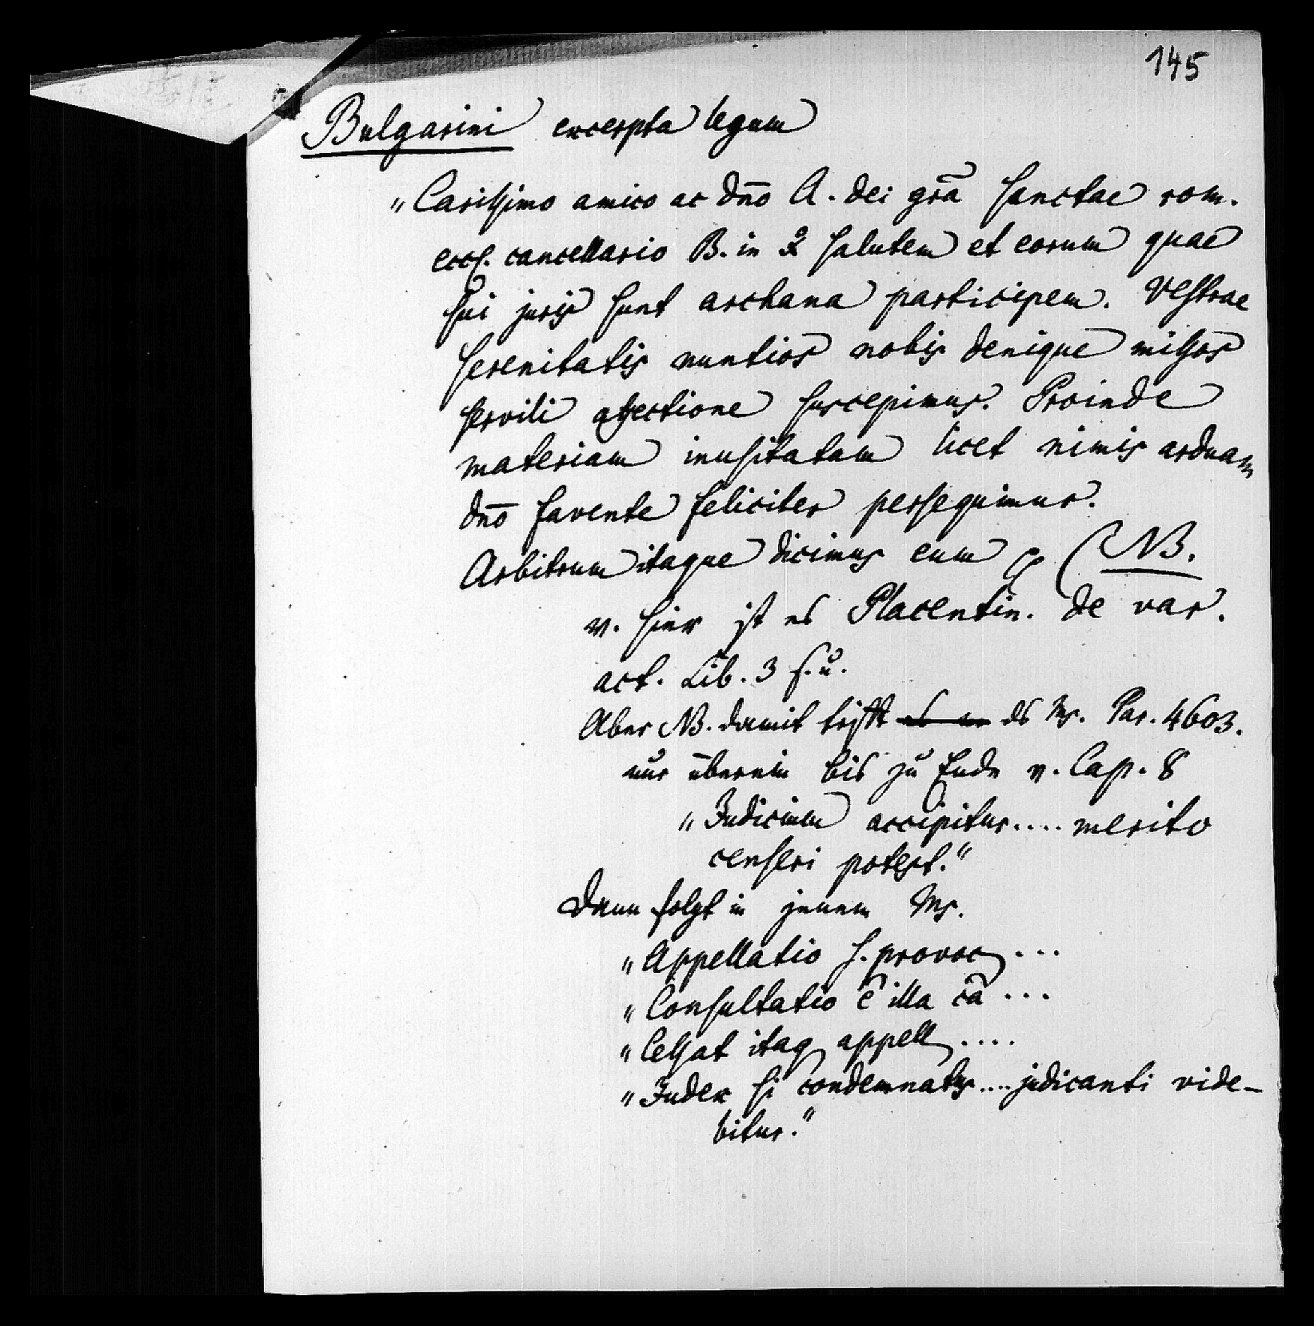 145
Bulgarini excerpta legum
„Carissimo amico ac dn̄o A. dei grā sanctae rom.
eccl. cancellario B. in salutem et eorum quae
sui juris sunt archana participem. Vestrae
serenitatis nuntios nobis denique missos
servili affectione suscepimus. Proinde
materiam inusitatam licet nimis arduam
dn̄o favente feliciter persequimur.
Arbitrum itaque dicimus eum (NB.
v. hier ist es Placentin. de var.
act. Lib. 3 s. u.
Aber NB. damit trifft ds Ms. Par. 4603.
nur überein bis zu Ende v. Cap. 8
„Judicium accipitur.... merito
censeri potest.“
Dann folgt in jenem Ms.
„Appellatio s. provoc ...
„Consultatio ē illa cā ...
„Cessat itaq appell ....
„Judex si condemnatus.... judicanti vide-
bitur.“